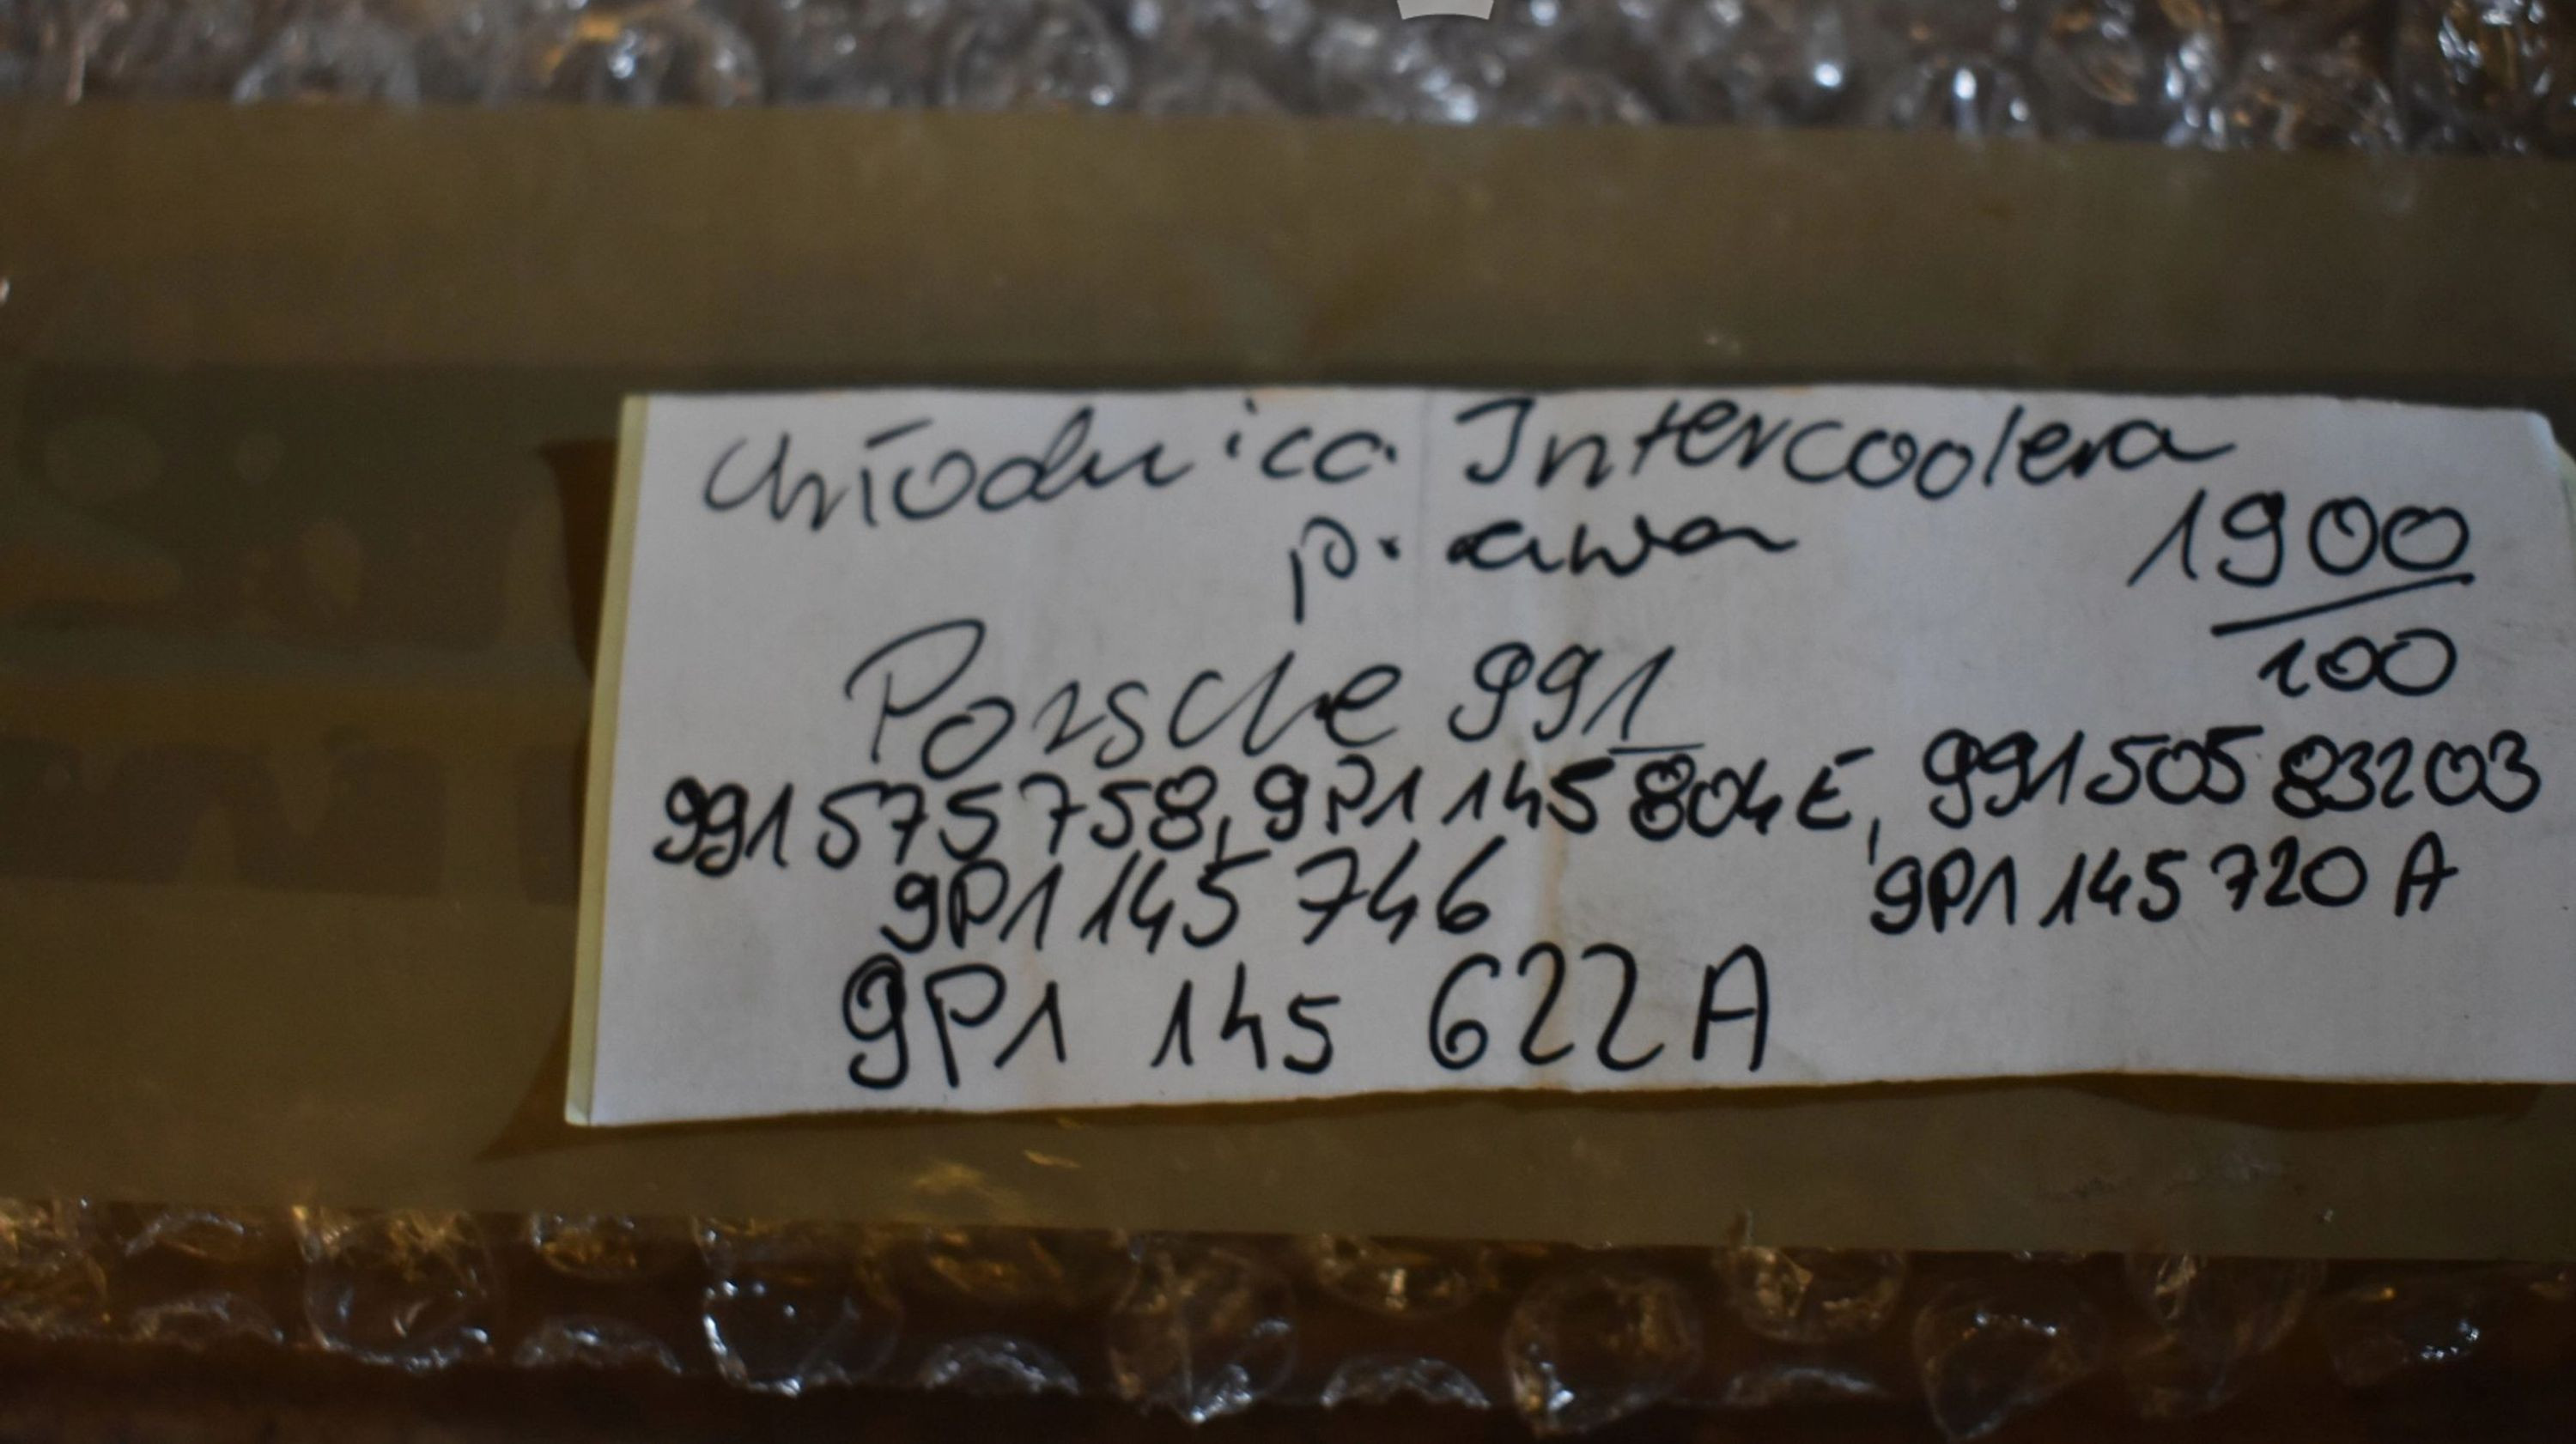 Chłodnica Intercoolera
prawa
1900
100
Porsche 991
991 575 758, 9P1 145 804 E, 991 505 83203
9P1 145 746
9P1 145 720 A
9P1 145 622 A